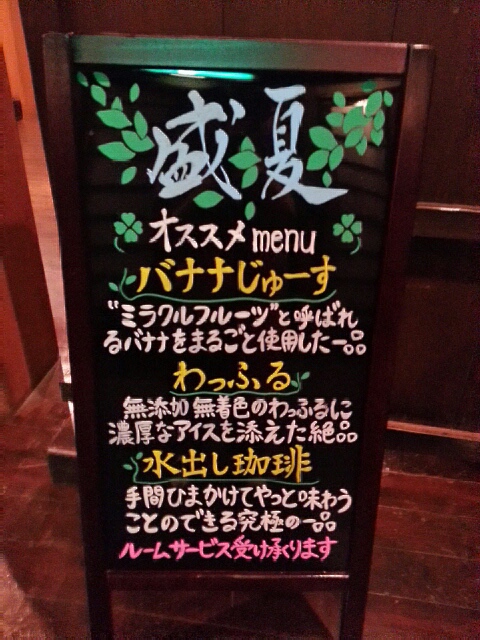 盛夏
オススメmenu
バナナじゅーす
"ミラクルフルーツ"と呼ばれ
るバナナをまるごと使用した一品
わっふる
無添加 無着色のわっふるに
濃厚なアイスを添えた絶品
水出し珈琲
手間ひまかけてやっと味わう
ことのできる究極の一品
ルームサービス受け承ります